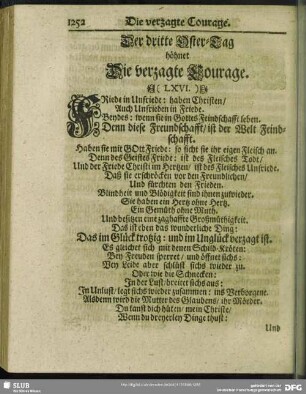 1252
Die verzagte Courage.
Der dritte Oster-Tag
höhnet
Die verzagte Courage.
( LXVI. )
FRiede in Unfriede: haben Christen/
Auch Unfrieden in Friede.
Beydes: wenn sie in Gottes Feindschafft leben.
Denn diese Freundschafft/ ist der Welt Feind-
schafft.
Haben sie mit GOtt Friede: so ficht sie ihr eigen Fleisch an.
Denn des Geistes Friede: ist des Fleisches Todt/
Und der Friede Christi im Hertzen/ ist des Fleisches Unfriede.
Daß sie erschröcken vor den Freundlichen/
Und fürchten den Frieden.
Blindheit und Blödigkeit sind ihnen zuwieder.
Sie haben ein Hertz ohne Hertz.
Ein Gemüth ohne Muth.
Und besitzen eine zaghaffte Großmüthigkeit.
Das ist eben das wunderliche Ding:
Das im Glück trotzig: und im Unglück verzagt ist.
Es gleichet sich mit denen Schild-Kröten:
Bey Freuden sperret/ und öffnet sichs:
Bey Leide aber schlüst sichs wieder zu.
Oder wie die Schnecken:
In der Lust/ breitet sichs aus:
In Unlust/ legt sichs wieder zusammen: ins Verborgene.
Alsdenn wird die Mutter des Glaubens/ ihr Mörder.
Du kanst dich hüten/ mein Christe/
Wenn du dreyerley Dinge thust:
Und
SLUB
DFG